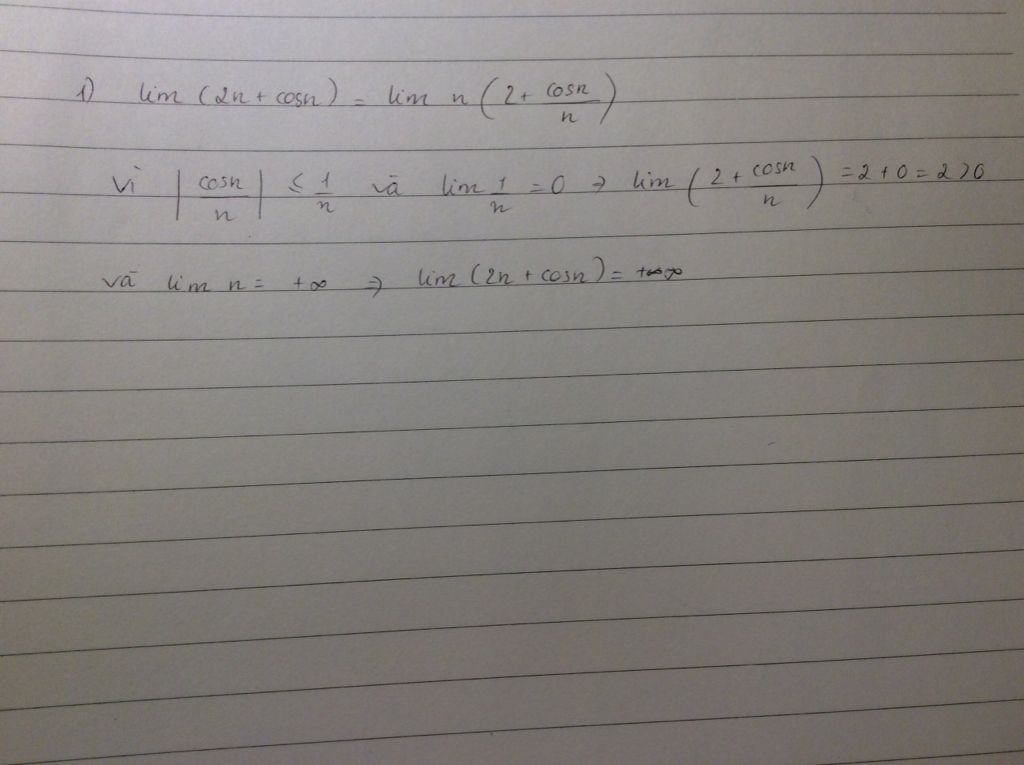 1) lim (2n + cosn) = lim n (2 + cosn/n)
Vì |cosn/n| ≤ 1/n và lim 1/n = 0 ⇒ lim (2 + cosn/n) = 2 + 0 = 2 > 0
và lim n = +∞ ⇒ lim (2n + cosn) = +∞